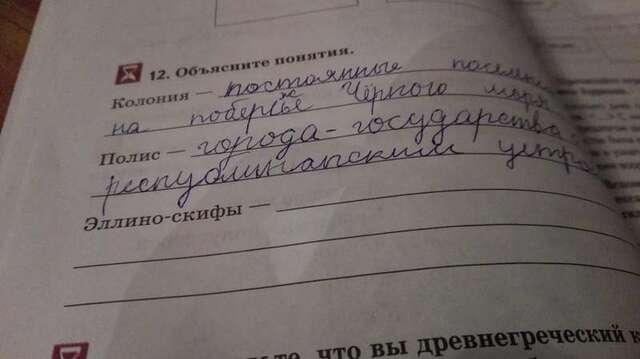 12. Объясните понятия.
Колония — постоянные
на побержье Чёрного моря
Полис — города-государства
республиканский
Эллино-скифы —
что вы древнегреческий